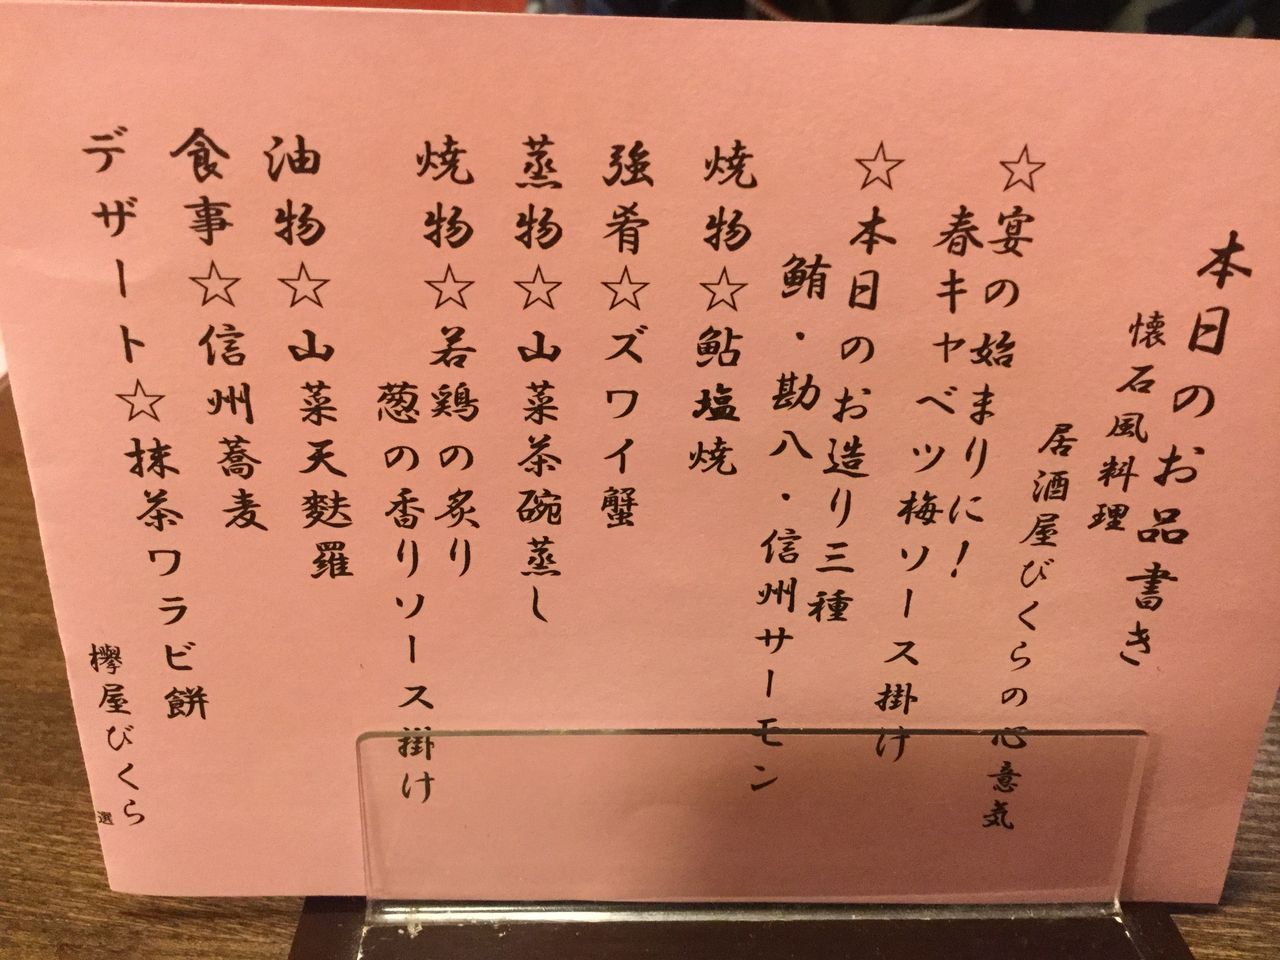 本日のお品書き
懐石風料理
居酒屋びくらの心意気
☆宴の始まりに!
春キャベツ梅ソース掛け
☆本日のお造り三種
鮪・勘八・信州サーモン
焼物☆鮎塩焼
強肴☆ズワイ蟹
蒸物☆山菜茶碗蒸し
焼物☆若鶏の炙り
葱の香りソース掛け
油物☆山菜天麩羅
食事☆信州蕎麦
デザート☆抹茶ワラビ餅
欅屋びくら
選